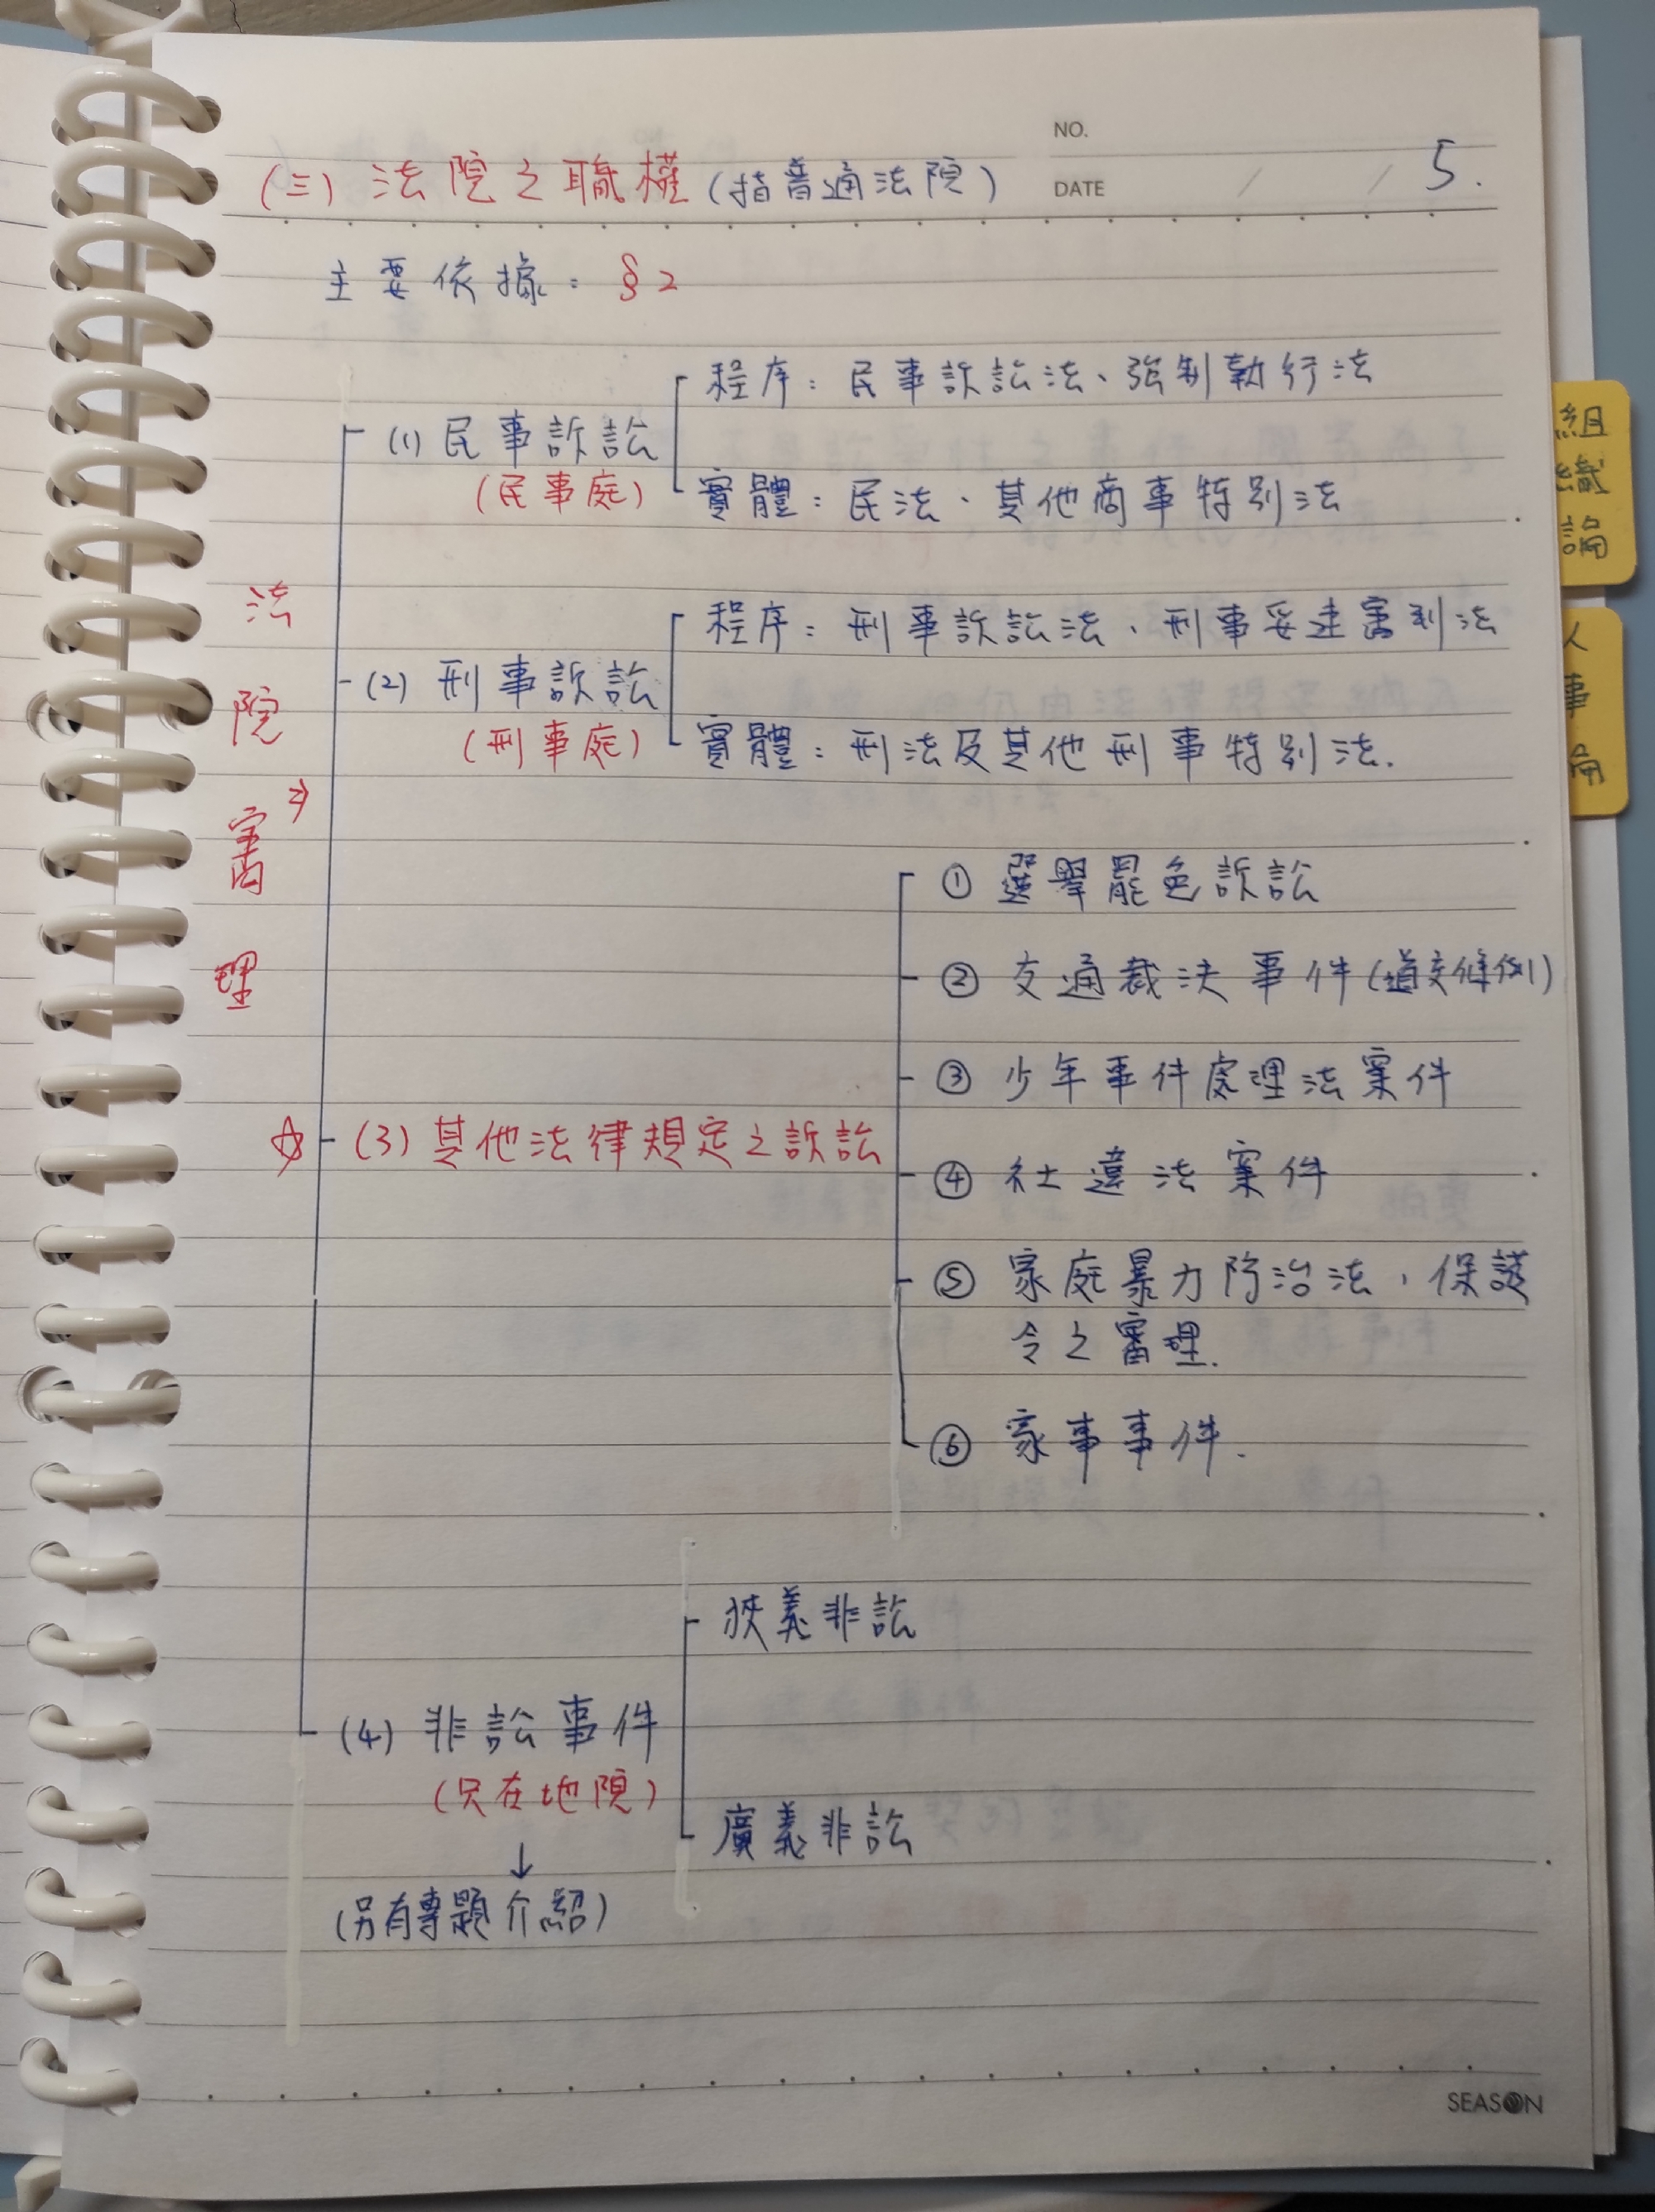 NO.
DATE / / 5.
(三) 法院之職權(指普通法院)
主要依據：§2
法院審理 ⇒
(1) 民事訴訟
(民事庭)
程序：民事訴訟法、強制執行法
實體：民法、其他商事特別法
(2) 刑事訴訟
(刑事庭)
程序：刑事訴訟法、刑事妥速審判法
實體：刑法及其他刑事特別法.
☆ (3) 其他法律規定之訴訟
① 選舉罷免訴訟
② 交通裁決事件(道交條例)
③ 少年事件處理法案件
④ 社違法案件
⑤ 家庭暴力防治法，保護
令之審理.
⑥ 家事事件.
(4) 非訟事件
(只在地院)
↓
(另有專題介紹)
狹義非訟
廣義非訟
組織論
人事
SEASON